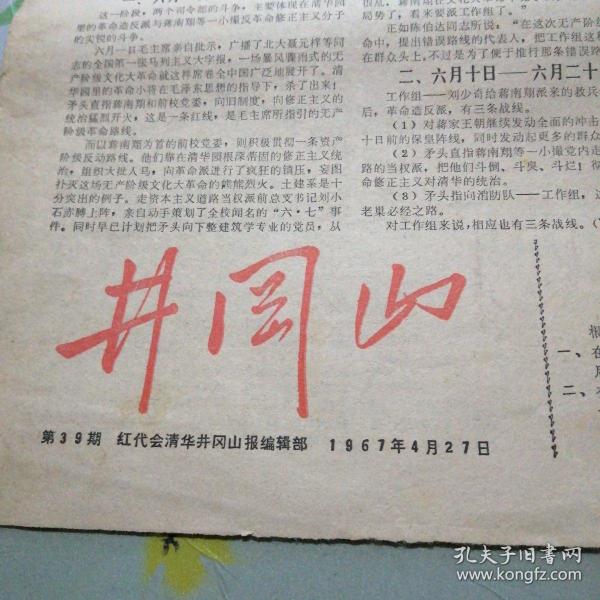 这一阶段，两个司令部的斗争，主要体现在清华园
里的革命造反派与蒋南翔等一小撮反革命修正主义分子
的尖锐的斗争。
六月一日毛主席亲自批示，广播了北大聂元梓等同
志的全国第一张马列主义大字报，一场暴风骤雨式的无
产阶级文化大革命就这样席卷全中国广泛地展开了。清
华园里的革命小将在毛泽东思想的指导下，杀了出来！
矛头直指蒋南翔和前校党委，向旧制度，向修正主义的
统治猛烈开火，这是一条红线，是毛主席所指引的无产
阶级革命路线。
而以蒋南翔为首的前校党委，则积极贯彻一条资产
阶级反动路线。他们靠在清华园根深蒂固的修正主义统
治，组织大批人马，向革命派进行了疯狂的镇压，妄图
扑灭这场无产阶级文化大革命的熊熊烈火。土建系是十
分突出的例子。走资本主义道路当权派前总支书记刘小
石赤膊上阵，亲自动手策划了全校闻名的“六·七”事
件。同时早已计划把矛头向下整建筑学专业的党员，从
局势了，看来要派工作组了。”
正如陈伯达同志所说：“在这次无产阶级
命中，提出错误路线的代表人，把工作组这种
在群众头上，不过是为了便于推行那条错误路
二、六月十日——六月二十
工作组——刘少奇给蒋南翔派来的救兵
后，革命造反派，有三条战线。
（1）对蒋家王朝继续发动全面的冲击
十日前的保皇阵线，同时发动起更多的群众
（2）矛头直指蒋南翔等一小撮党内走
路的当权派，把他们斗倒、斗臭、斗烂！彻
命修正主义对清华的统治。
（3）矛头指向消防队——工作组，这
老巢必经之路。
对工作组来说，相应也有三条战线。（
井冈山
第39期 红代会清华井冈山报编辑部 1967年4月27日
一、在
二、
孔夫子旧书网
www.kongfz.com